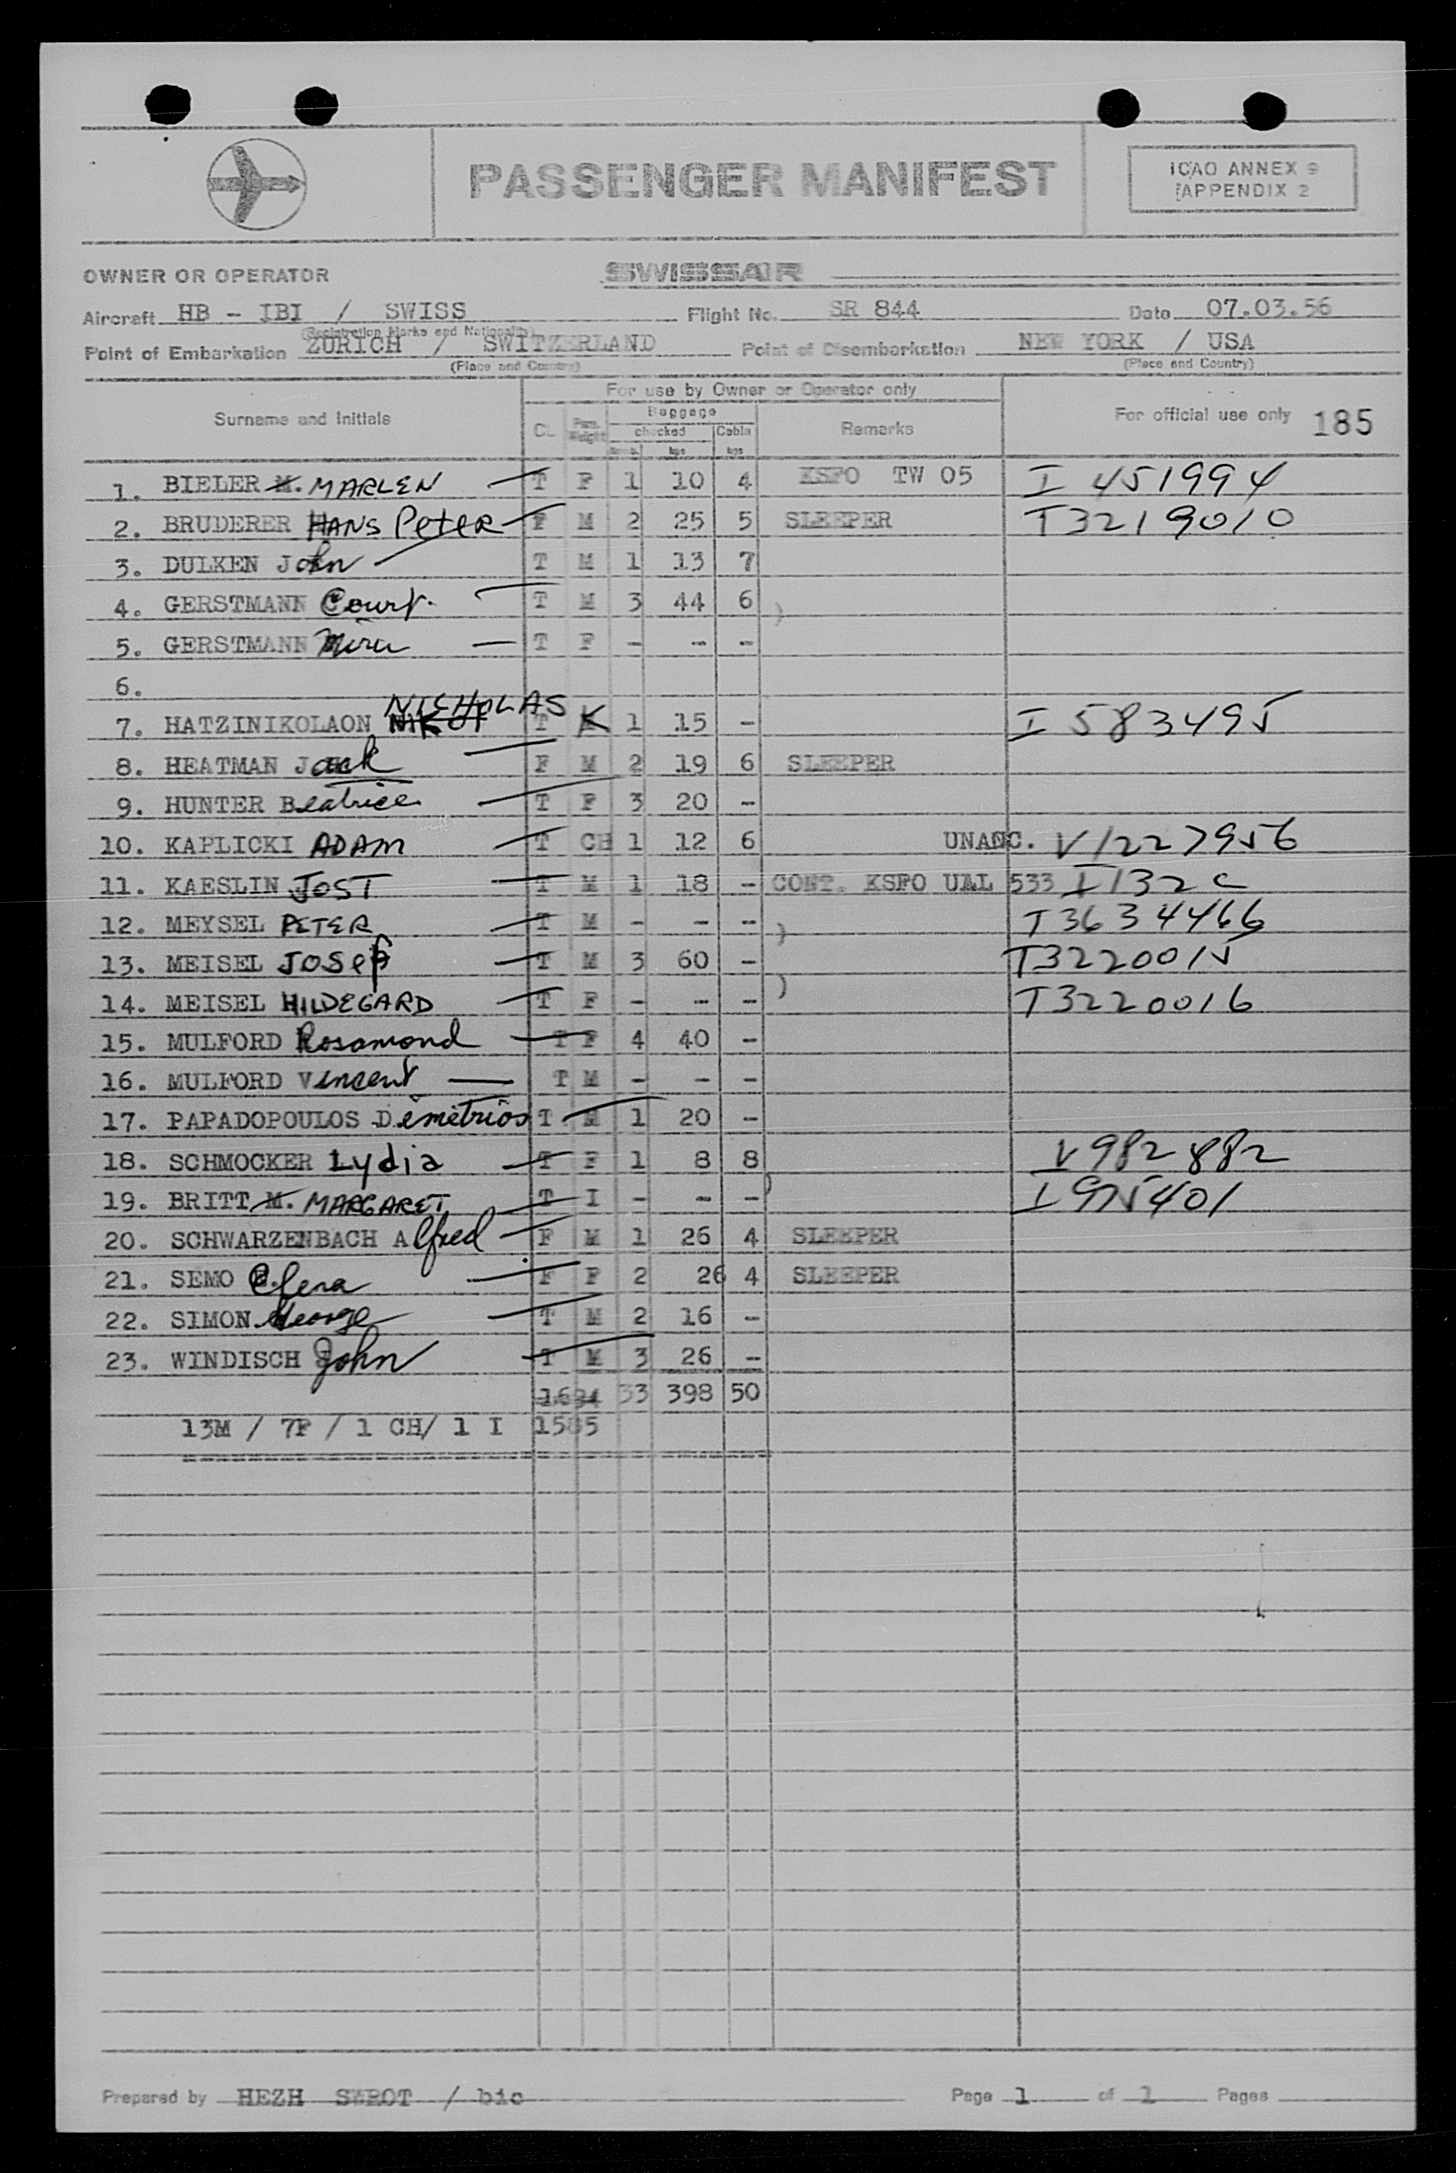 PASSENGER MANIFEST
ICAO ANNEX 9
APPENDIX 2
OWNER OR OPERATOR SWISSAIR
Aircraft HB - IBI / SWISS Flight No. SR 844 Date 07.03.56
(Registration Marks and Nationality)
Point of Embarkation ZURICH / SWITZERLAND Point of Disembarkation NEW YORK / USA
(Place and Country) (Place and Country)
For use by Owner or Operator only
Surname and Initials CL. Pass. Weight Baggage checked kgs Cabin kgs Remarks For official use only 185
1. BIELER M. MARLEN T F 1 10 4 KSFO TW 05 I 451994
2. BRUDERER HANS Peter F M 2 25 5 SLEEPER T3219010
3. DULKEN John T M 1 13 7
4. GERSTMANN Court. T M 3 44 6 )
5. GERSTMANN Mira T F - - -
6.
7. HATZINIKOLAON NICHOLAS T M 1 15 - I 583495
8. HEATMAN Jack F M 2 19 6 SLEEPER
9. HUNTER Beatrice T F 3 20 -
10. KAPLICKI ADAM T CH 1 12 6 UNANC. V1227956
11. KAESLIN JOST T M 1 18 - CONT. KSFO UAL 533 I132C
12. MEYSEL PETER T M - - - ) T3634466
13. MEISEL JOSEF T M 3 60 - T3220015
14. MEISEL HILDEGARD T F - - - ) T3220016
15. MULFORD Rosamond T F 4 40 -
16. MULFORD Vincent T M - - -
17. PAPADOPOULOS Demetrios T M 1 20 -
18. SCHMOCKER Lydia T F 1 8 8 V982882
19. BRITT M. MARGARET T I - - - ) I975401
20. SCHWARZENBACH Alfred F M 1 26 4 SLEEPER
21. SEMO Elena F F 2 26 4 SLEEPER
22. SIMON George T M 2 16 -
23. WINDISCH John T M 3 26 -
33 398 50
13M / 7F / 1 CH/ 1 I 1585
Prepared by HEZH SWROT / bic Page 1 of 1 Pages